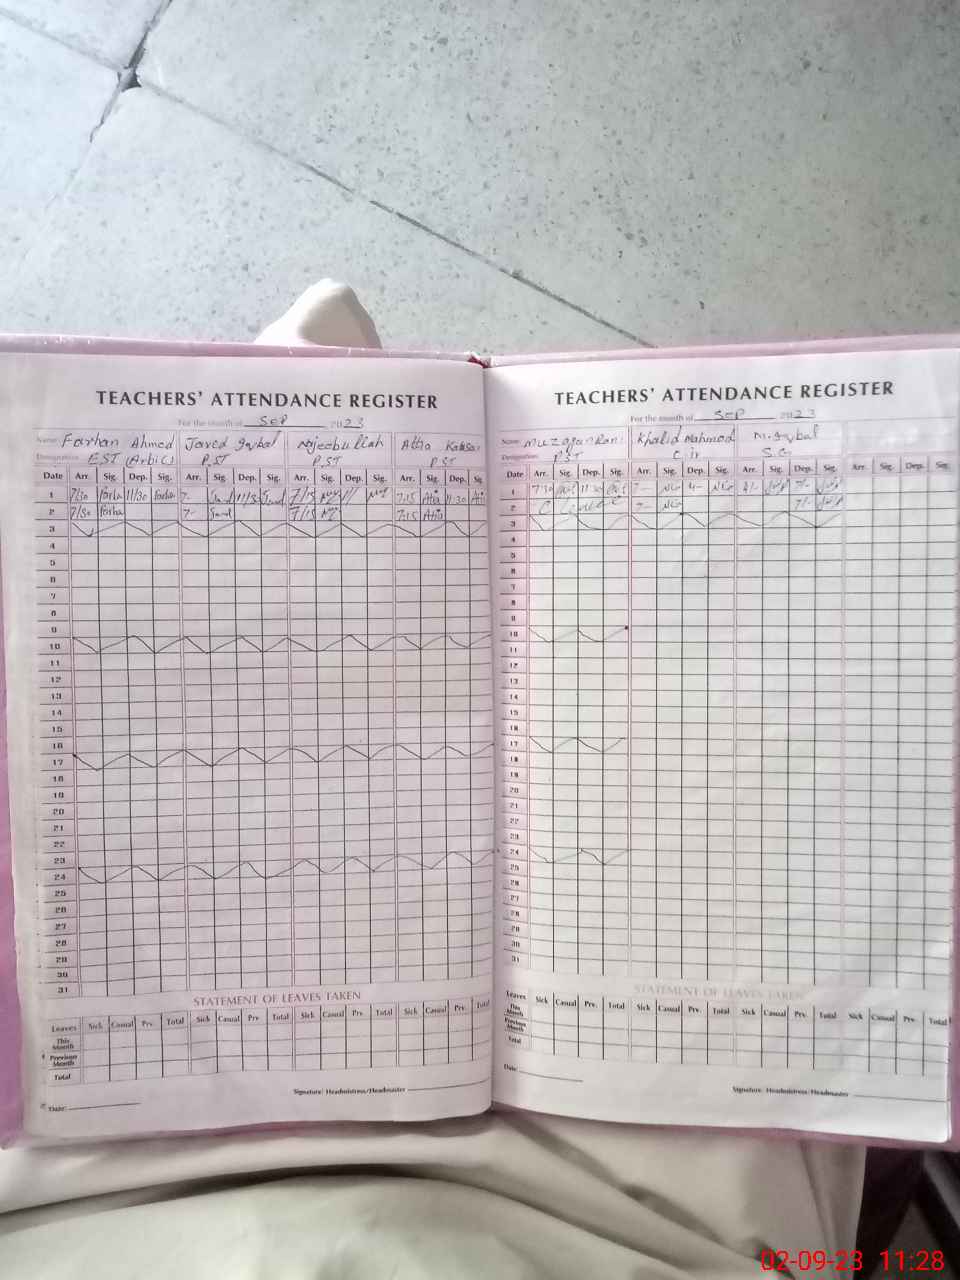 TEACHERS' ATTENDANCE REGISTER
For the month of SEP 2023
Name: Farhan Ahmed Javed Iqbal Najeebullah Attia
Designation: EST (Arbic) PST PST PST
Date Arr. Sig. Dep. Sig. Arr. Sig. Dep. Sig. Arr. Sig. Dep. Sig. Arr. Sig. Dep. Sig.
1 7/30 Farha 11/30 Farha 7- 7/15 7:15 Atia 11:30
2 7/30 Farha 7- 7/15 7:15 Atia
3
4
5
6
7
8
9
10
11
12
13
14
15
16
17
18
19
20
21
22
23
24
25
26
27
28
29
30
31
STATEMENT OF LEAVES TAKEN
Leaves Sick Casual Prv. Total Sick Casual Prv. Total Sick Casual Prv. Total Sick Casual Prv. Total
This Month
Previous Month
Total
Signature: Headmistress/Headmaster
Date:
TEACHERS' ATTENDANCE REGISTER
For the month of SEP 2023
Name: Khalid Mahmood M. Iqbal
Designation: PST
Date Arr. Sig. Dep. Sig. Arr. Sig. Dep. Sig. Arr. Sig. Dep. Sig. Arr. Sig. Dep. Sig.
1 7-30 11-30 7-
2 C Leave 7-
3
4
5
6
7
8
9
10
11
12
13
14
15
16
17
18
19
20
21
22
23
24
25
26
27
28
29
30
31
STATEMENT OF LEAVES TAKEN
Leaves Sick Casual Prv. Total Sick Casual Prv. Total Sick Casual Prv. Total Sick Casual Prv. Total
This Month
Previous Month
Total
Date:
Signature: Headmistress/Headmaster
02-09-23 11:28